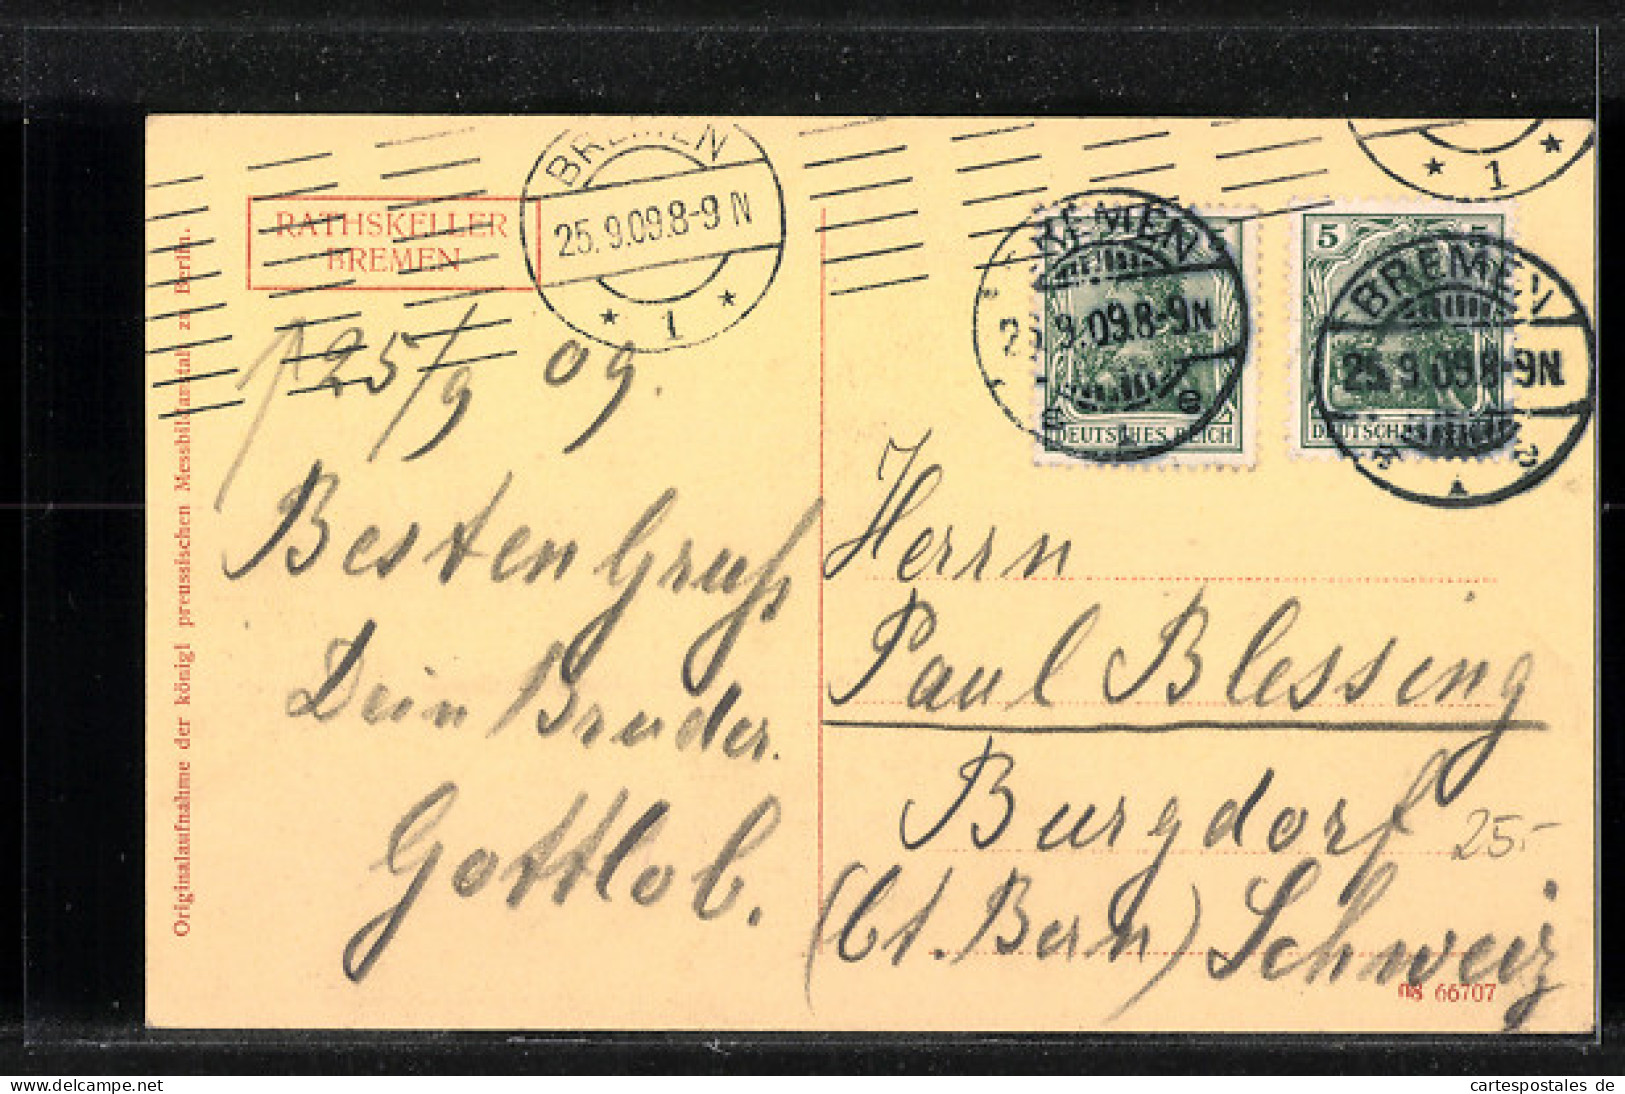 RATHSKELLER
BREMEN
BREMEN
25.9.09.8-9 N
* 1 *
* 1 *
BREMEN
25.9.09.8-9N
e
DEUTSCHES REICH
5 5
BREMEN
25.9.09.8-9N
25/9 09.
Besten Gruß
Dein Bruder.
Gottlob.
Herrn
Paul Blessing
Burgdorf
(Ct. Bern) Schweiz
25.-
08 66707
Originalaufnahme der königl preussischen Messbildanstal zu Berlin.
cartespostales de